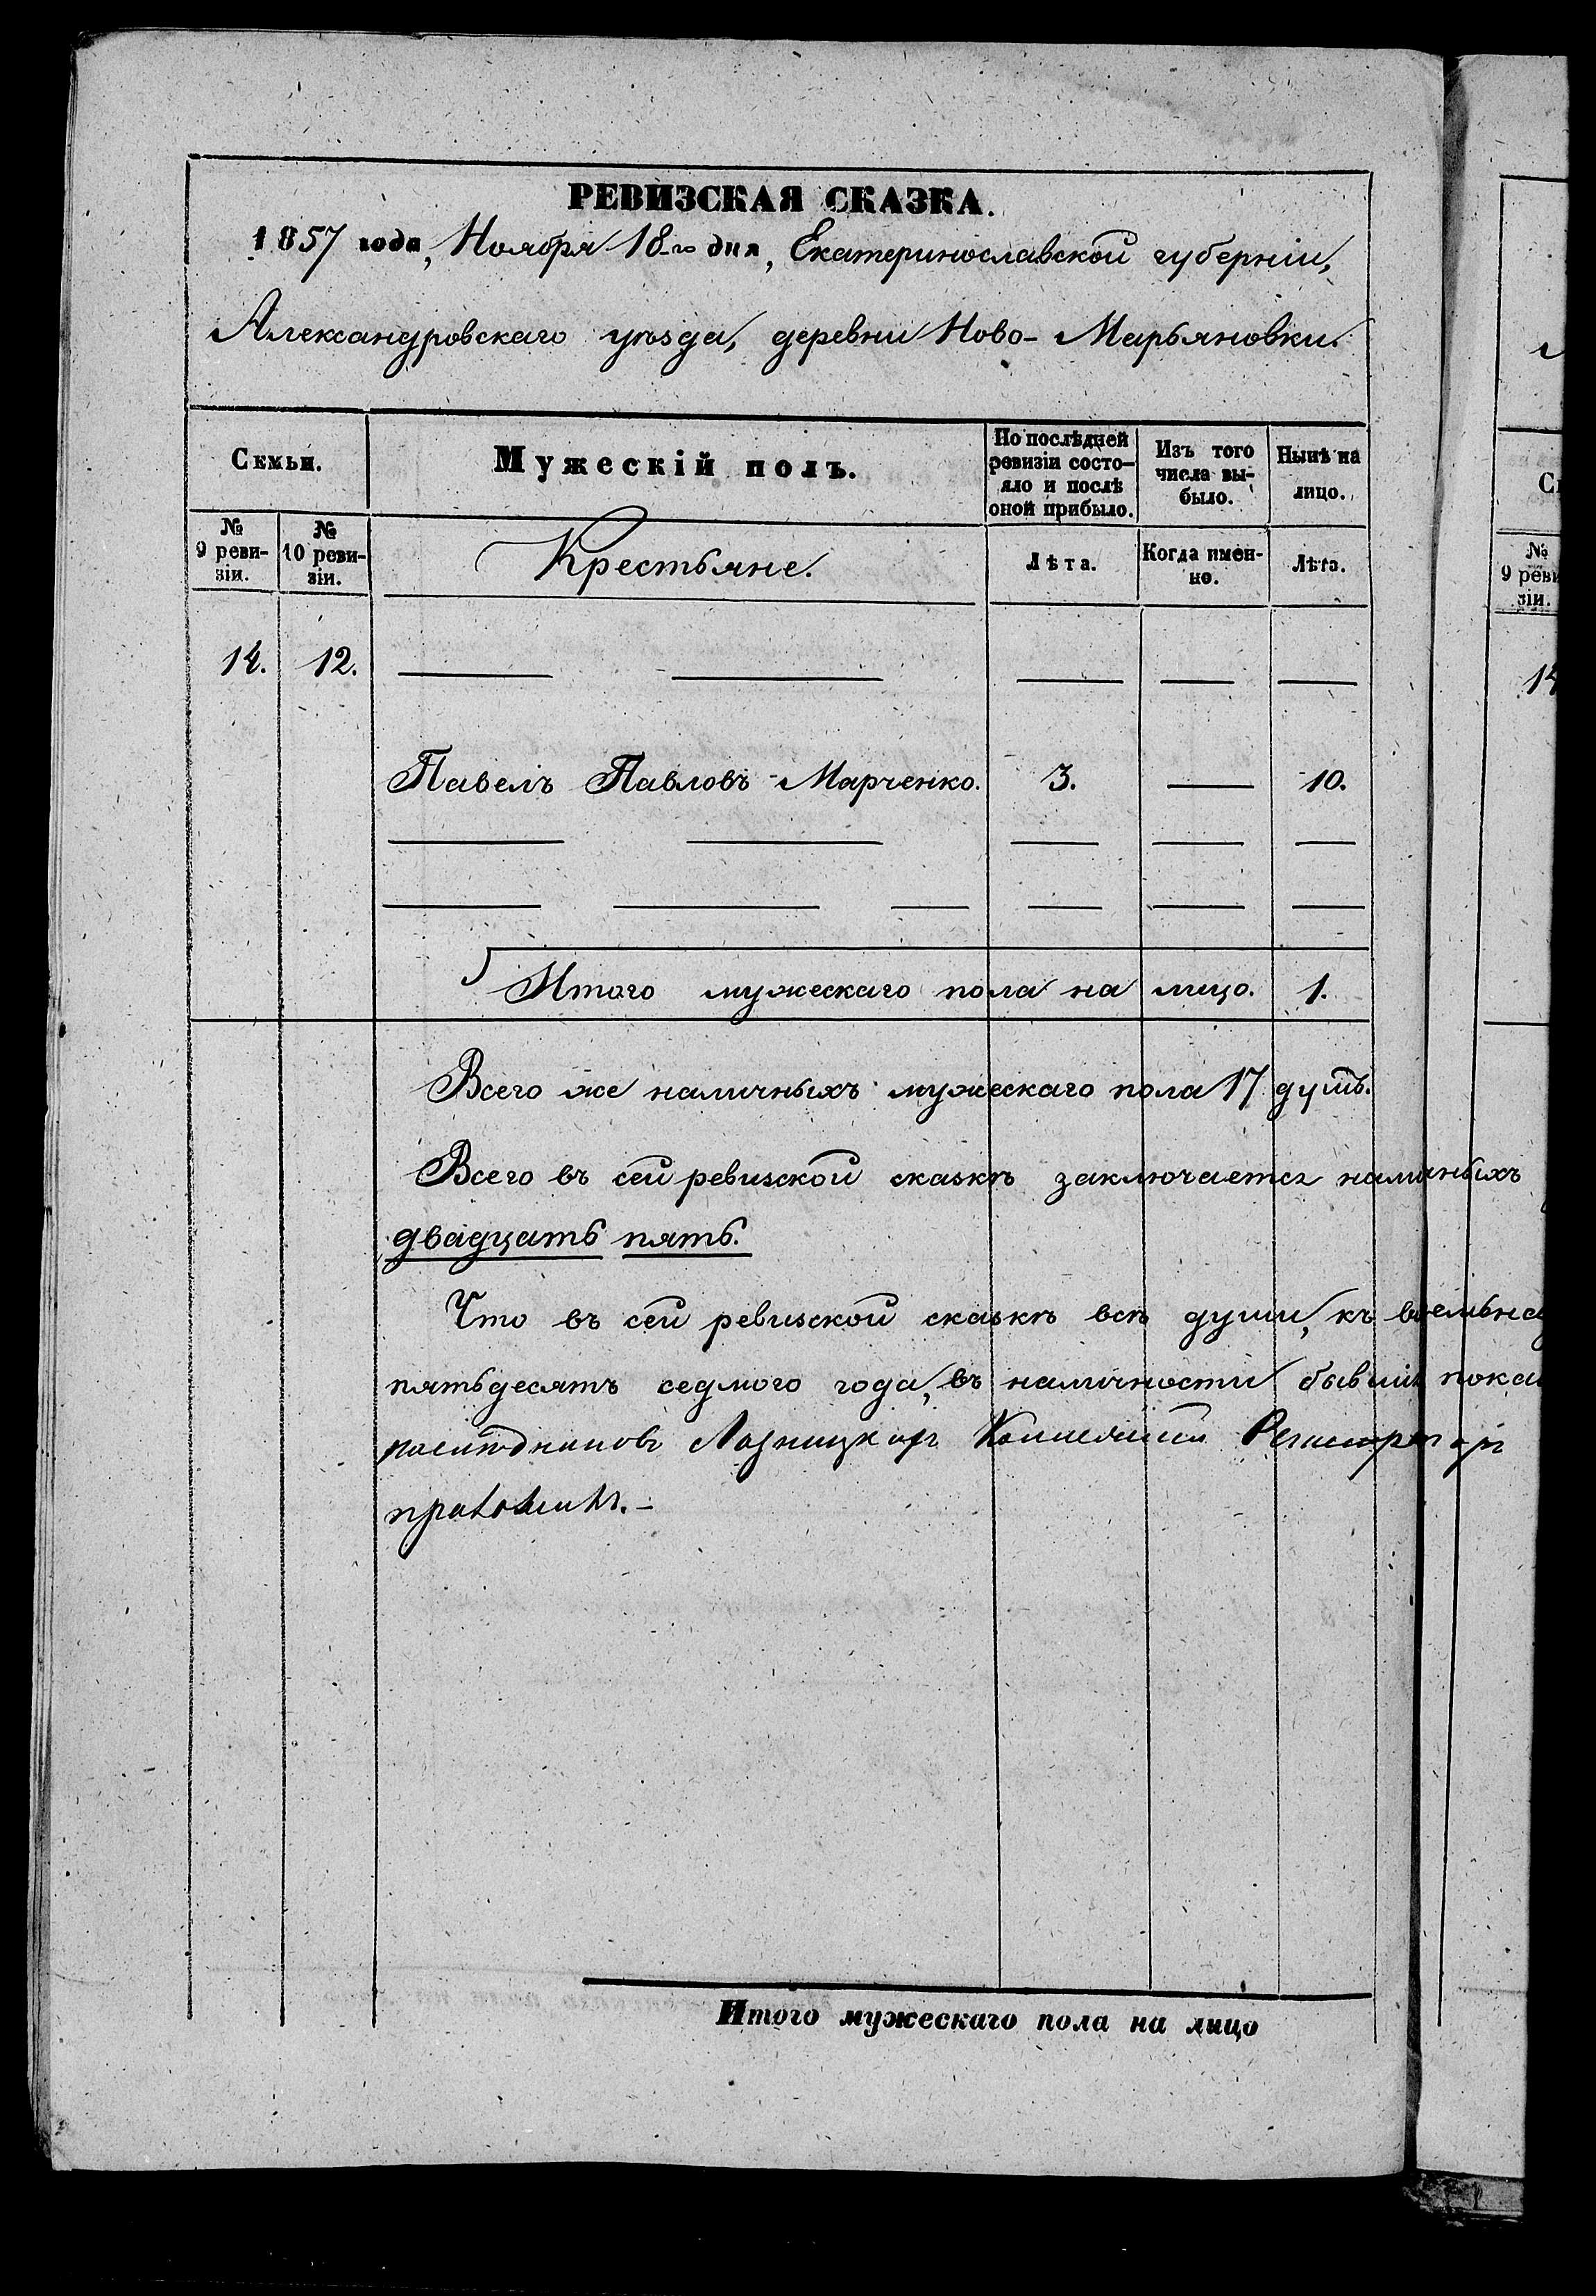 РЕВИЗСКАЯ СКАЗКА.
1857 года, Ноября 18-го дня, Екатеринославской губерніи,
Александровскаго уѣзда, деревни Ново-Марьяновки.
Семьи.
Мужескій полъ.
По послѣдней ревизіи состо-
яло и послѣ оной прибыло.
Изъ того числа вы-
было.
Нынѣ на лицо.
№ 9 реви-
зіи.
№ 10 реви-
зіи.
Крестьяне.
Лѣта.
Когда имен-
но.
Лѣта.
14. 12.
Павелъ Павловъ Марченко. 3. 10.
Итого мужескаго пола на лицо. 1.
Всего же наличныхъ мужескаго пола 17 душъ.
Всего въ сей ревизской сказкѣ заключается наличныхъ
двадцать пять.
Что въ сей ревизской сказкѣ всѣ души, къ
пятьдесятъ седмого года, въ наличности бывшія
Итого мужескаго пола на лицо
№
9 реви
зіи.
14